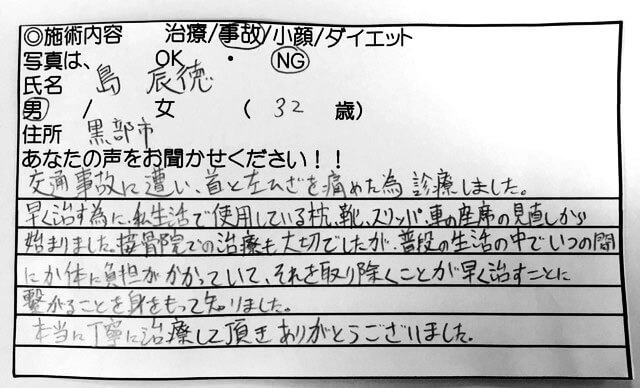 ◎施術内容 治療/事故/小顔/ダイエット
写真は、 OK ・ NG
氏名 島 辰徳
男 / 女 ( 32 歳)
住所 黒部市
あなたの声をお聞かせください!!
交通事故に遭い、首と左ひざを痛めた為診療しました。
早く治す為に、私生活で使用している枕、靴、スリッパ、車の座席の見直しから
始まりました。接骨院での治療も大切でしたが、普段の生活の中でいつの間
にか体に負担がかかっていて、それを取り除くことが早く治すことに
繋がることを身をもって知りました。
本当に丁寧に治療して頂きありがとうございました。